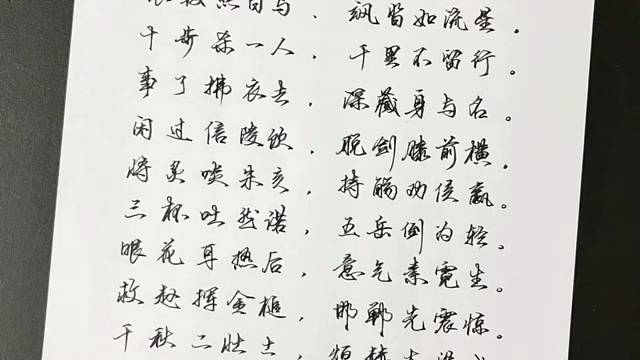 照白马，飒沓如流星。
十步杀一人，千里不留行。
事了拂衣去，深藏身与名。
闲过信陵饮，脱剑膝前横。
将炙啖朱亥，持觞劝侯嬴。
三杯吐然诺，五岳倒为轻。
眼花耳热后，意气素霓生。
救赵挥金槌，邯郸先震惊。
千秋二壮士，